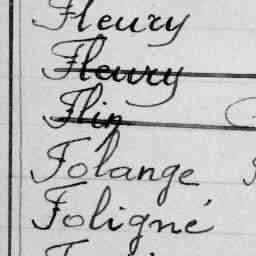 Fleury
Fleury
Flin
Folange
Foligné